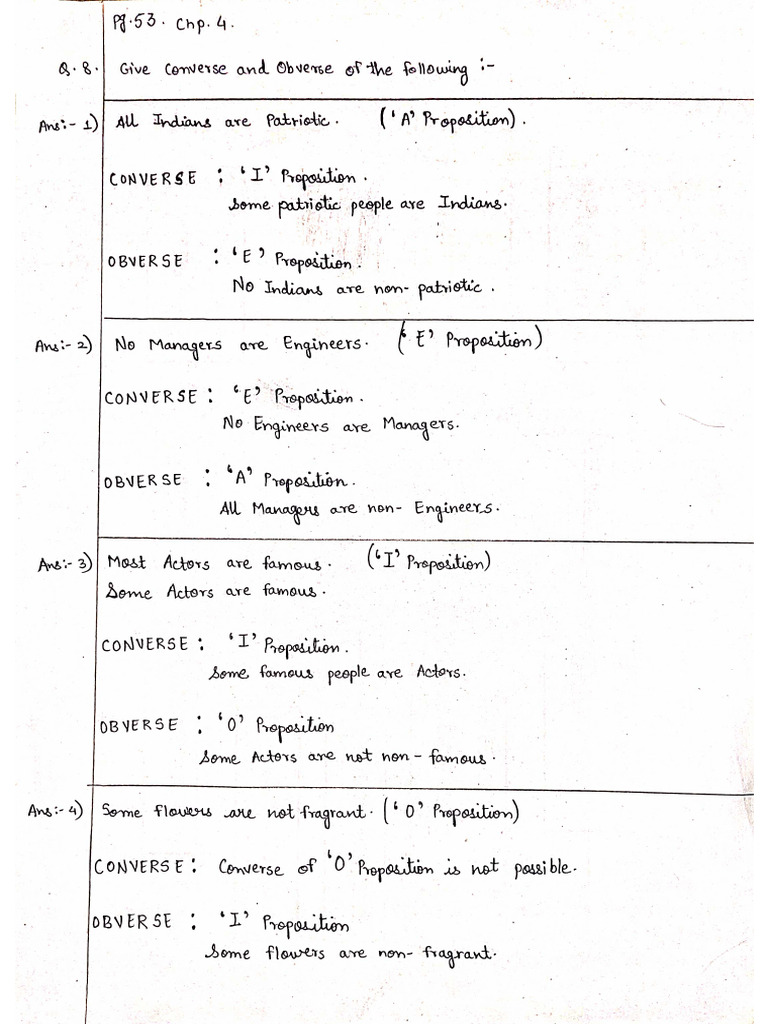 Pg.53. Chp. 4.
Q.8. Give Converse and Obverse of the following :-
Ans:- 1) All Indians are Patriotic. ('A' Proposition).
CONVERSE : 'I' Proposition.
Some patriotic people are Indians.
OBVERSE : 'E' Proposition.
No Indians are non-patriotic.
Ans:- 2) No Managers are Engineers. ('E' Proposition)
CONVERSE : 'E' Proposition.
No Engineers are Managers.
OBVERSE : 'A' Proposition.
All Managers are non-Engineers.
Ans:- 3) Most Actors are famous. ('I' Proposition)
Some Actors are famous.
CONVERSE : 'I' Proposition.
Some famous people are Actors.
OBVERSE : 'O' Proposition
Some Actors are not non-famous.
Ans:- 4) Some flowers are not fragrant. ('O' Proposition)
CONVERSE : Converse of 'O' Proposition is not possible.
OBVERSE : 'I' Proposition
Some flowers are non-fragrant.